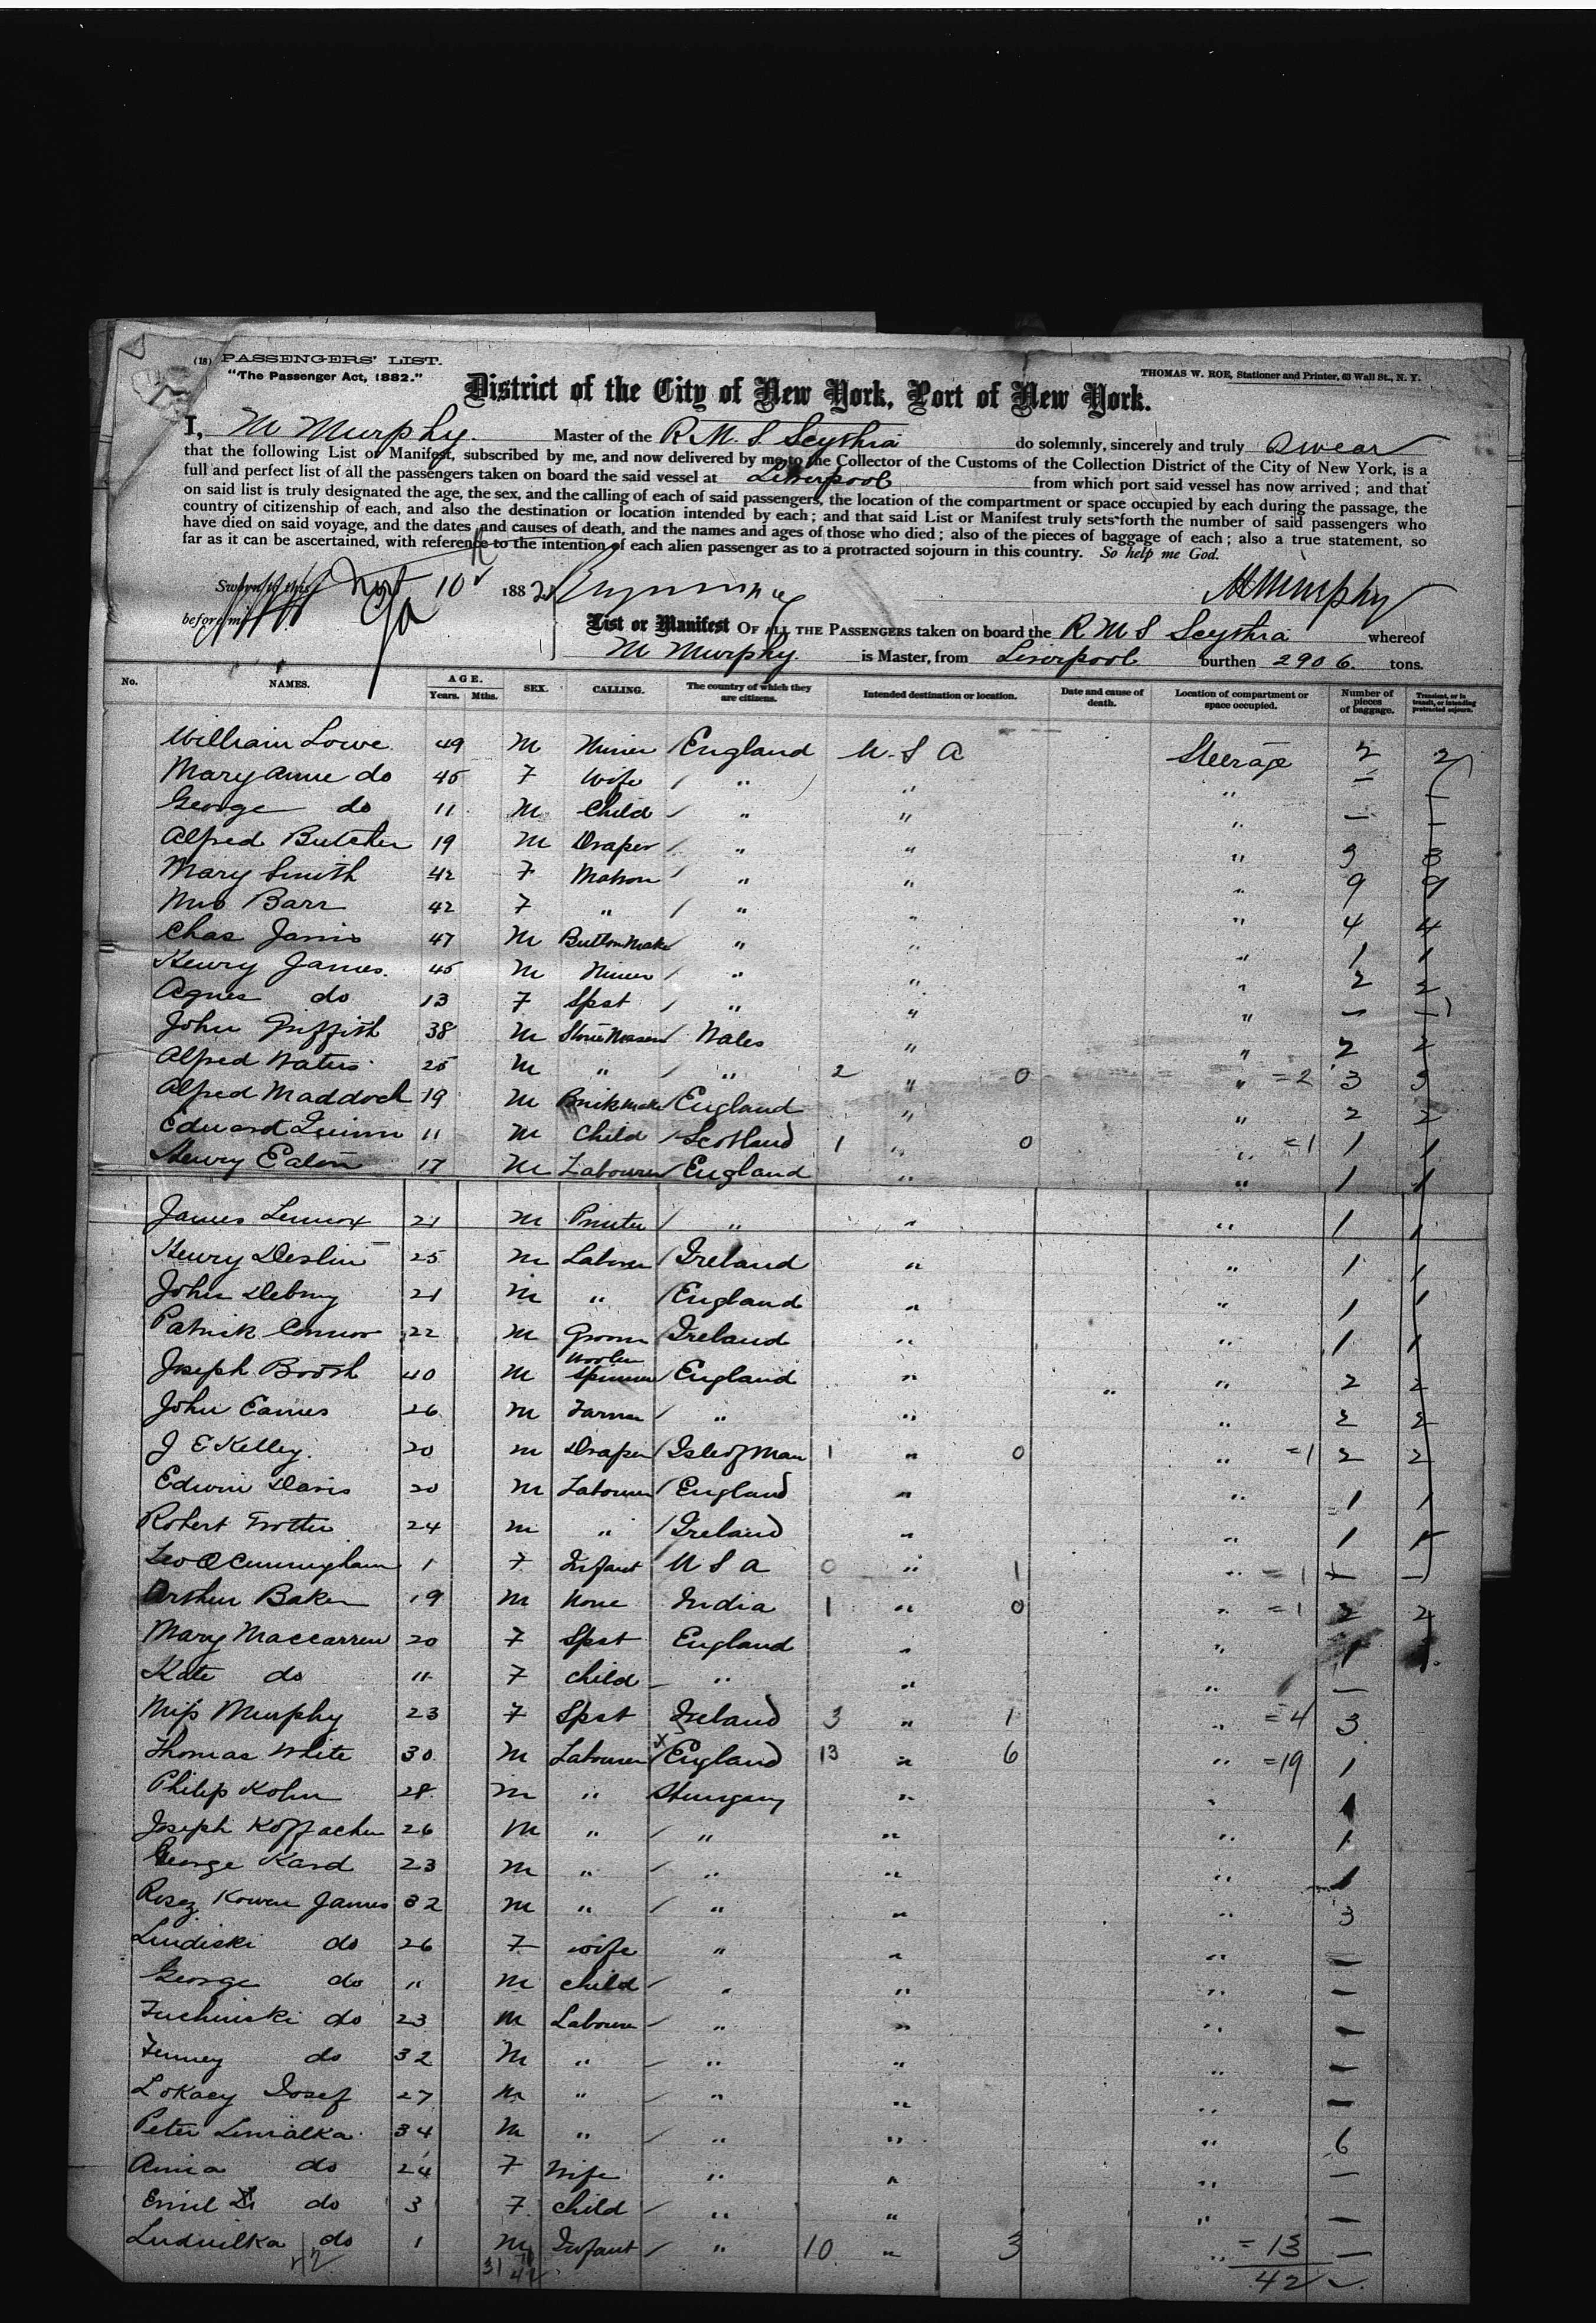 (18) PASSENGERS' LIST.
"The Passenger Act, 1882."
THOMAS W. ROE, Stationer and Printer, 63 Wall St., N. Y.
District of the City of New York, Port of New York.
I, M Murphy. Master of the R. M. S Scythia do solemnly, sincerely and truly Swear
that the following List or Manifest, subscribed by me, and now delivered by me to the Collector of the Customs of the Collection District of the City of New York, is a
full and perfect list of all the passengers taken on board the said vessel at Liverpool from which port said vessel has now arrived; and that
on said list is truly designated the age, the sex, and the calling of each of said passengers, the location of the compartment or space occupied by each during the passage, the
country of citizenship of each, and also the destination or location intended by each; and that said List or Manifest truly sets forth the number of said passengers who
have died on said voyage, and the dates and causes of death, and the names and ages of those who died; also of the pieces of baggage of each; also a true statement, so
far as it can be ascertained, with reference to the intention of each alien passenger as to a protracted sojourn in this country. So help me God.
Sworn to this 10 188 M Murphy
before me
List or Manifest OF ALL THE PASSENGERS taken on board the R M S Scythia whereof
M Murphy is Master, from Liverpool burthen 2906 tons.
No. NAMES. AGE. Years. Mths. SEX. CALLING. The country of which they are citizens. Intended destination or location. Date and cause of death. Location of compartment or space occupied. Number of pieces of baggage. Transient, or in transit, or intending protracted sojourn.
William Lowe 49 M Miner England U. S A Steerage 2 2
Mary Anne do 45 F Wife " " " — —
George do 11 M Child " " " — —
Alfred Butcher 19 M Draper " " " 3 3
Mary Smith 42 F Matron " " " 9 9
Mrs Barr 42 F " " " " 4 4
Chas Jarvis 47 M Button Make " " " 1 1
Henry James. 45 M Miner " " " 2 2
Agnes do 13 F Spst " " " — —
John Griffith 38 M Stone Mason Wales " " 2 2
Alfred Waters 25 M " " 2 " 0 " =2 3 3
Alfred Maddock 19 M Brickmake England " " 2 2
Edward Quinn 11 M Child Scotland 1 " 0 " =1 1 1
Henry Eaton 17 M Labourer England " " 1 1
James Lennox 21 M Printer " " " 1 1
Henry Deslin 25 M Labourer Ireland " " 1 1
John 21 M " England " " 1 1
Patrick Connor 22 M Groom Ireland " " 1 1
Joseph Booth 40 M Woolen Spinner England " " " 2 2
John Eames 26 M Farmer " " " 2 2
J E Kelley. 20 M Draper Isle of Man 1 " 0 " =1 2 2
Edwin Davis 20 M Labourer England " " 1 1
Robert Trotter 24 M " Ireland " " 1 1
Leo Cunningham 1 F Infant U S A 0 " 1 " =1 — —
Arthur Baker 19 M None India 1 " 0 " =1 2 2
Mary Maccarren 20 F Spst England " " 1
Kate do 11 F Child " " " —
Miss Murphy 23 F Spst Ireland 3 " 1 " =4 3
Thomas White 30 M Labourer x England 13 " 6 " =19 1
Philip Kohn 28 M " Hungary " " 1
Joseph Koffacher 26 M " " " " 1
George Kard 23 M " " " " 1
Rosez Kowen James 32 M " " " " 3
Lindiski do 26 F Wife " " " —
George do 11 M Child " " " —
Tuchinski do 23 M Labourer " " " —
do 32 M " " " " —
Lokacy Josef 27 M " " " " —
Peter Limalka 34 M " " " " 6
Anna do 24 F Wife " " " —
Emil do 3 F Child " " " —
Ludmilka do 1 M Infant " 10 " 3 " =13 —
42